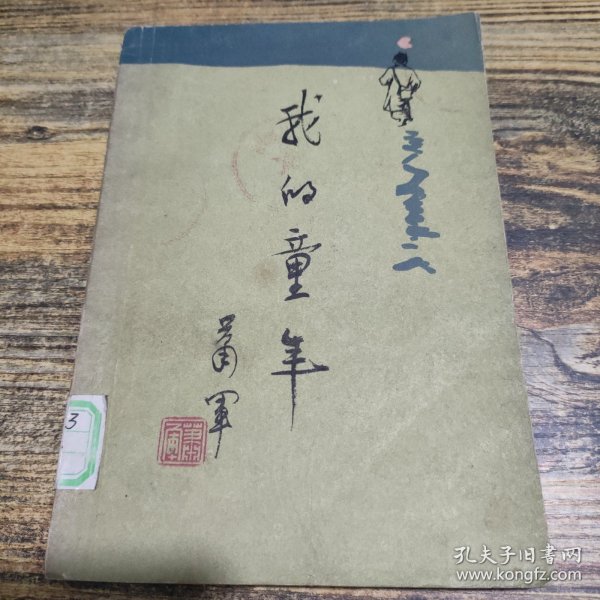 我的童年
萧军
萧军
3
孔夫子旧书网
www.kongfz.com